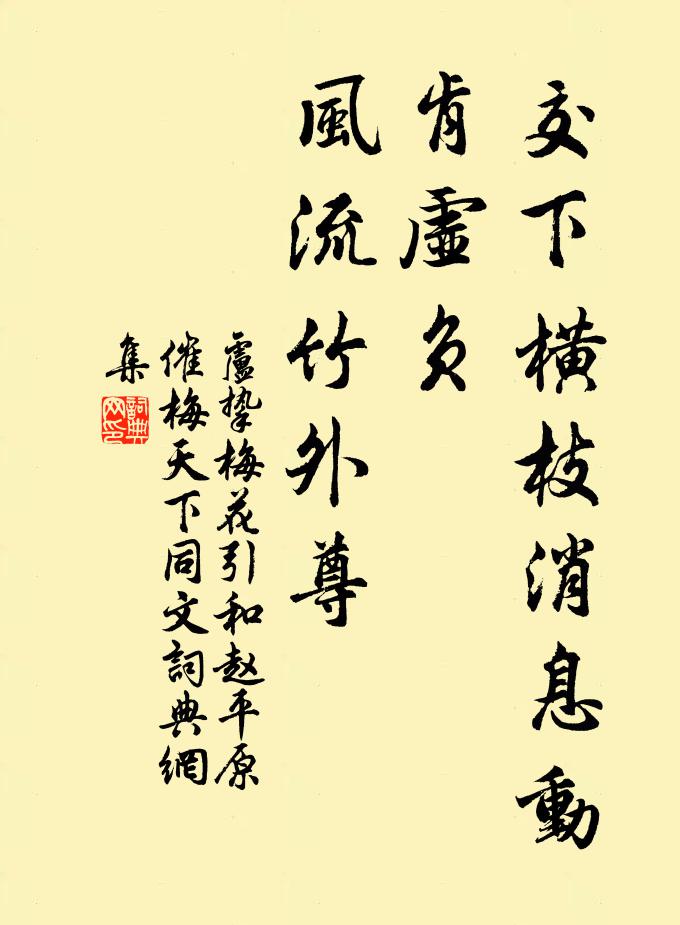 交下橫枝消息動
肯虛負
風流竹外尊
盧摯梅花引和赵平原
催梅天下同文詞典網
集
詞典
网印